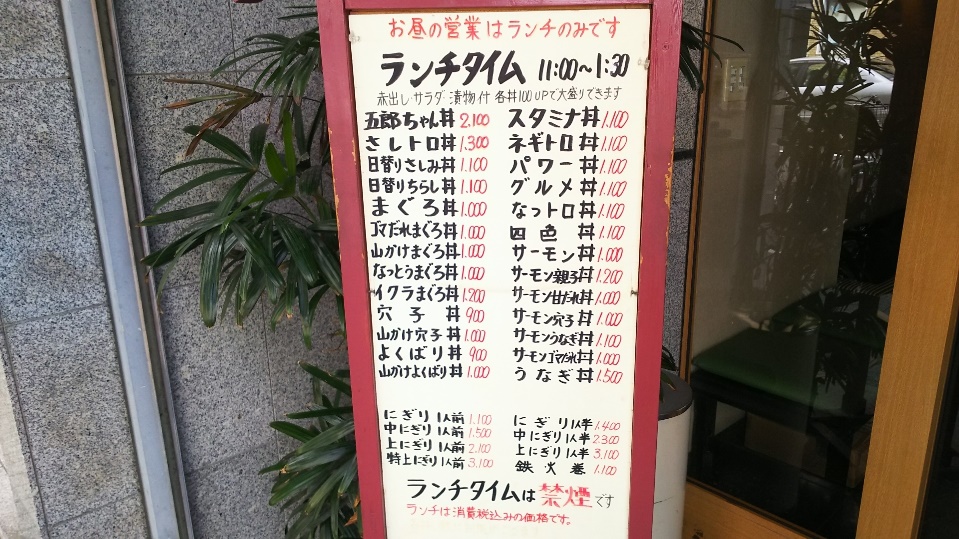 お昼の営業はランチのみです
ランチタイム 11:00〜1:30
赤出し・サラダ・漬物付 各丼100UPで大盛りできます
五郎ちゃん丼 2.100
さしトロ丼 1.300
日替りさしみ丼 1.100
日替りちらし丼 1.100
まぐろ丼 1.000
ゴマだれまぐろ丼 1.000
山かけまぐろ丼 1.000
なっとうまぐろ丼 1.000
イクラまぐろ丼 1.200
穴子丼 900
山かけ穴子丼 1.000
よくばり丼 900
山かけよくばり丼 1.000
スタミナ丼 1.100
ネギトロ丼 1.100
パワー丼 1.100
グルメ丼 1.100
なっトロ丼 1.100
四色丼 1.100
サーモン丼 1.000
サーモン親子丼 1.200
サーモン甘だれ丼 1.000
サーモン穴子丼 1.000
サーモンうなぎ丼 1.100
サーモンゴマだれ丼 1.000
うなぎ丼 1.500
にぎり1人前 1.100
中にぎり1人前 1.500
上にぎり1人前 2.100
特上にぎり1人前 3.100
にぎり1人半 1.400
中にぎり1人半 2.300
上にぎり1人半 3.100
鉄火巻 1.100
ランチタイムは禁煙です
ランチは消費税込みの価格です。